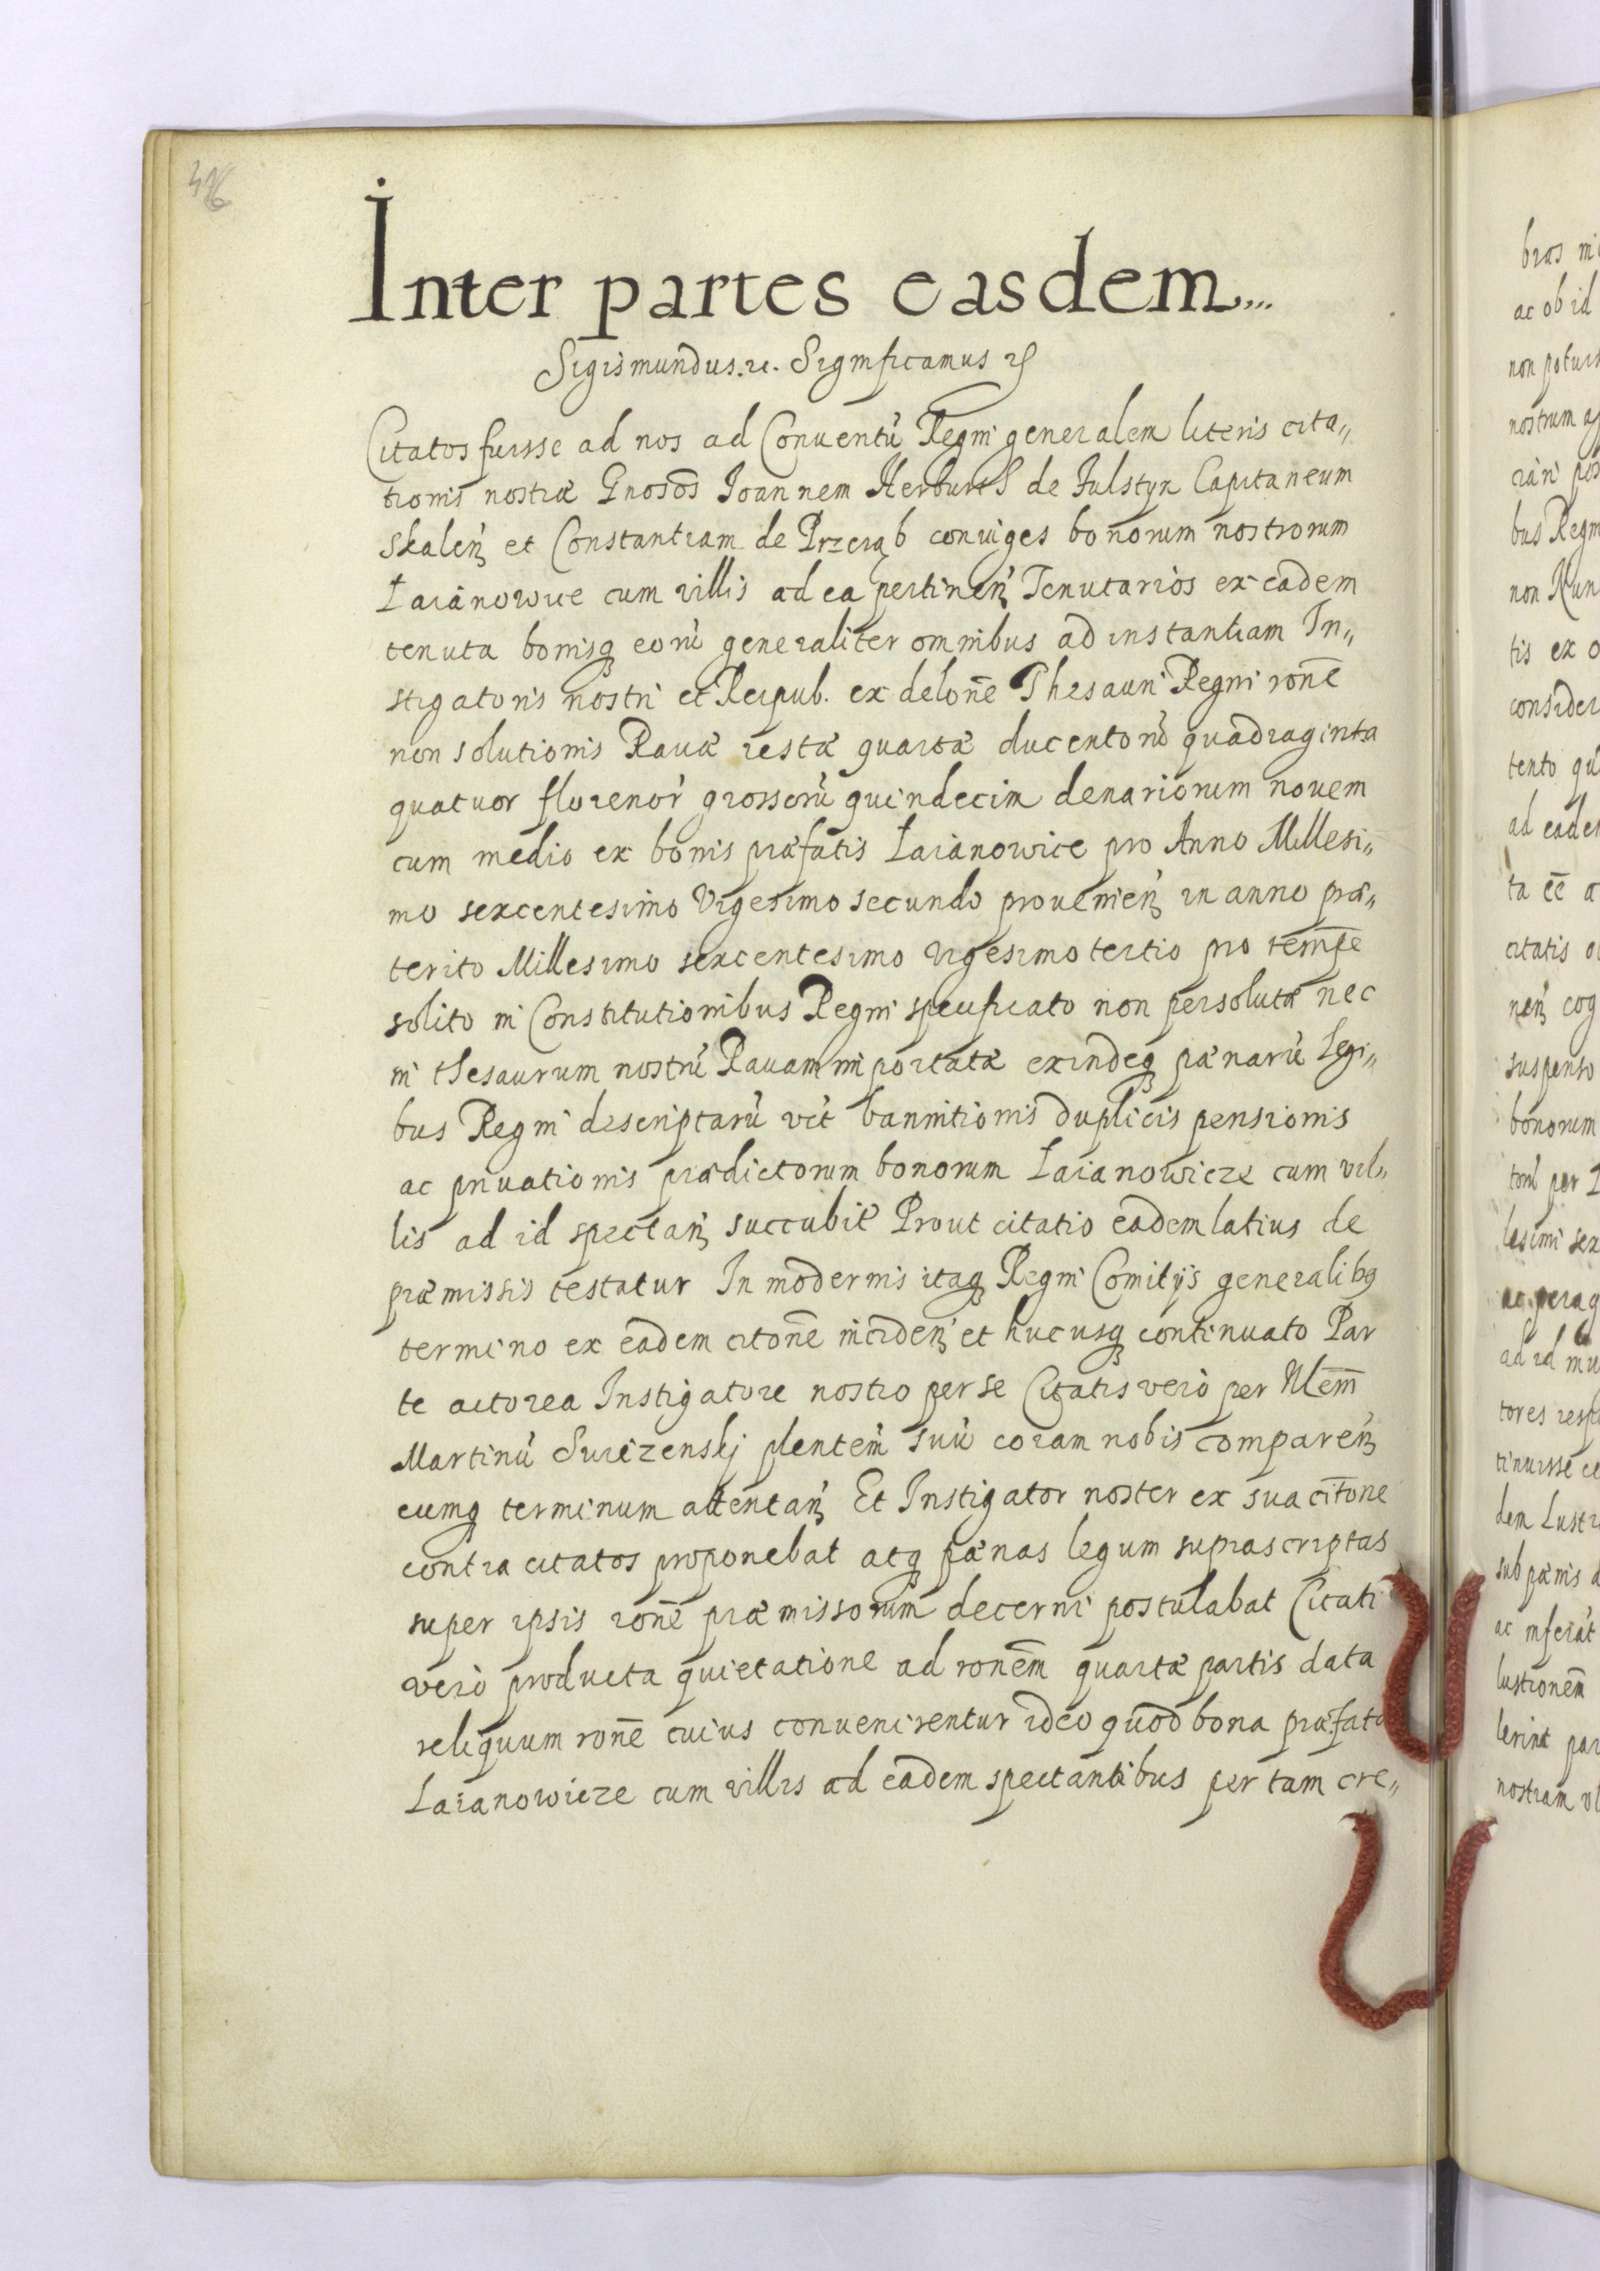 416
Inter partes easdem...
Sigismundus. etc. Significamus etc
Citatos fuisse ad nos ad Conuentũ Regni generalem literis cita„
tionis nostræ Gnosos Ioannem Herburth de Fulstyn Capitaneum
Skaleñ et Constantiam de Przerąb coniuges bonorum nostrorum
Łaianowice cum villis ad ea pertineñ Tenutarios ex eadem
tenuta bonisq eorũ generaliter omnibus ad instantiam In„
stigatoris nostri et Reipub. ex delone Thesauri Regni rone
non solutionis Rauæ restæ quartæ ducentorũ quadraginta
quatuor florenor grossorũ quindecim denariorum nouem
cum medio ex bonis præfatis Łaianowice pro Anno Millesi„
mo sexcentesimo Vigesimo secundo prouenieñ in anno præ„
terito Millesimo sexcentesimo Vigesimo tertio pro tempe
solito in Constitutionibus Regni specificato non persolutæ nec
in thesaurum nostrũ Rauam importatæ exindeq pænarũ Legi„
bus Regni descriptarũ vct bannitionis duplicis pensionis
ac priuationis prædictorum bonorum Łaianowicze cum vil„
lis ad id spectañ succubit Prout citatio eadem latius de
præmissis testatur In modernis itaq Regni Comitijs generalibq
termino ex eadem citone incideñ et hucusq continuato Par
te actorea Instigatore nostro per se Citatis verò per Nlem
Martinũ Swiezenskj plentem suũ coram nobis compareñ
eumq terminum attentañ Et Instigator noster ex sua citone
contra citatos proponebat atq pænas legum suprascriptas
super ipsis rone præmissorum decerni postulabat Citati
verò producta quietatione ad ronem quartæ partis data
reliquum rone cuius conuenirentur ideo quod bona præfata
Łaianowicze cum villis ad eadem spectantibus per tam cre„